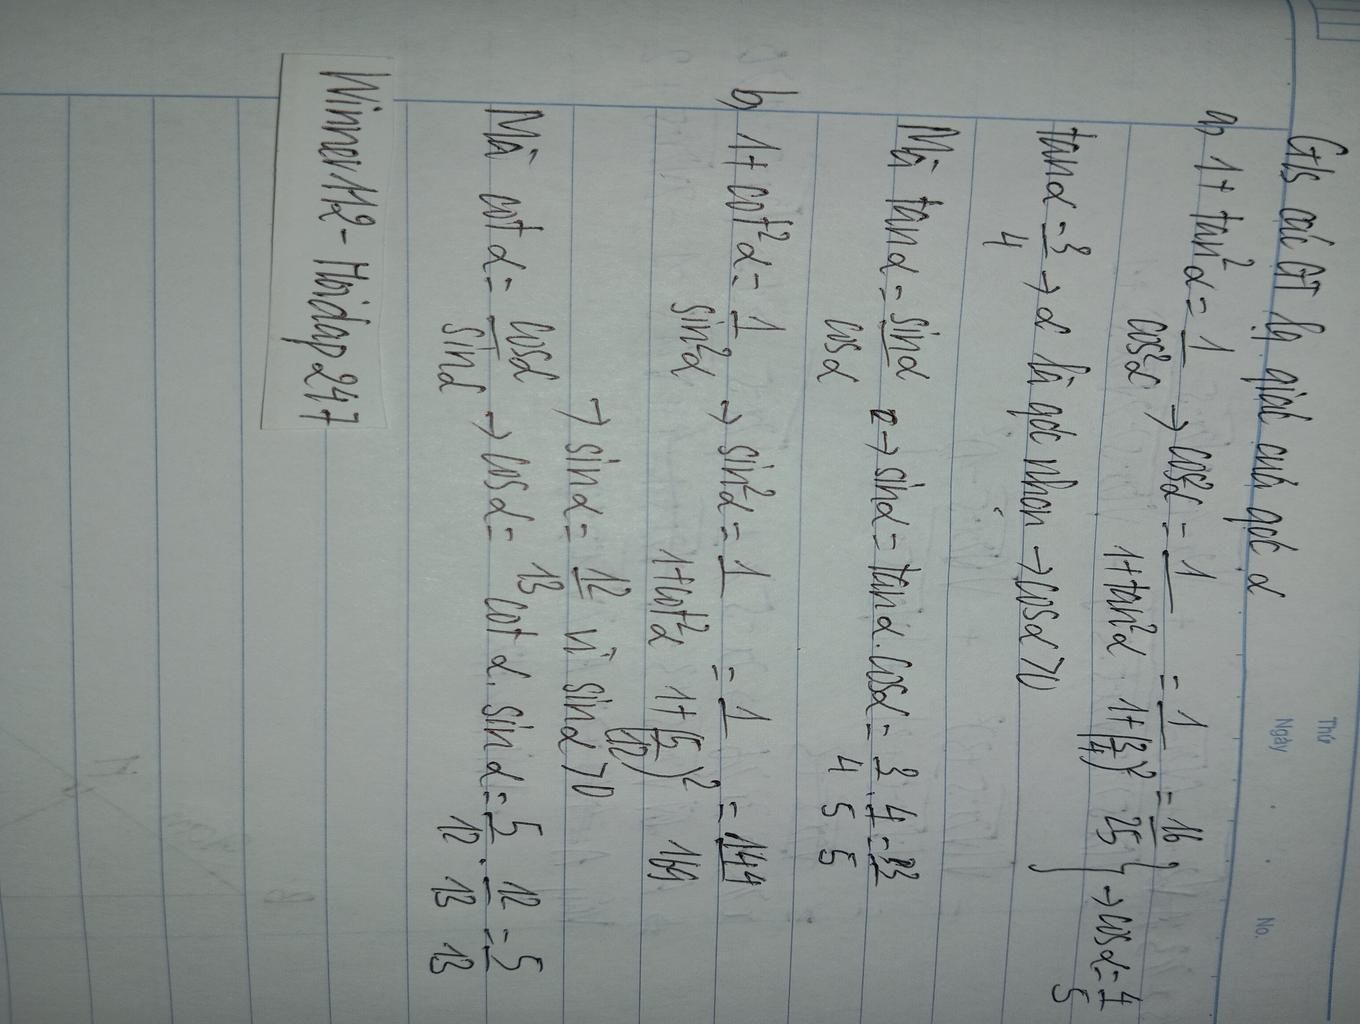 Thứ
Ngày No.
G/s các GT lg giác của góc α
a, 1 + tan²α = 1/cos²α → cos²α = 1/(1+tan²α) = 1/(1+(3/4)²) = 16/25 } → cosα = 4/5
tanα = 3/4 → α là góc nhọn → cosα > 0
Mà tanα = sinα/cosα → sinα = tanα . cosα = 3/4 . 4/5 = 3/5
b, 1 + cot²α = 1/sin²α → sin²α = 1/(1+cot²α) = 1/(1+(5/12)²) = 144/169
→ sinα = 12/13 vì sinα > 0
Mà cotα = cosα/sinα → cosα = cotα . sinα = 5/12 . 12/13 = 5/13
Winner112 - Hoidap247